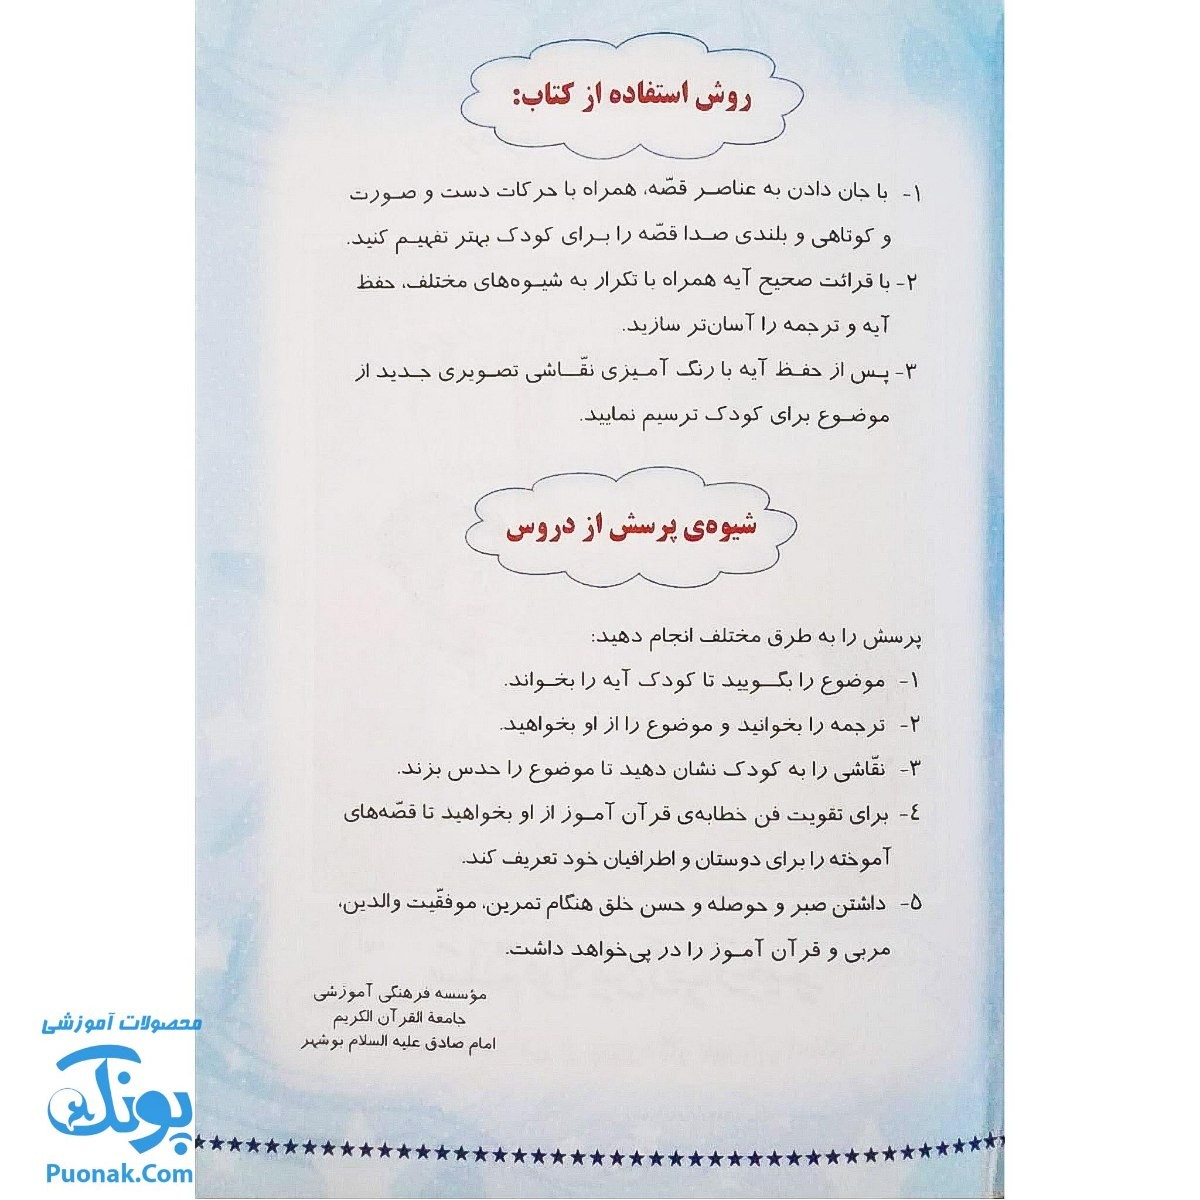 روش استفاده از کتاب:
۱- با جان دادن به عناصر قصّه، همراه با حرکات دست و صورت
و کوتاهی و بلندی صدا قصّه را برای کودک بهتر تفهیم کنید.
۲- با قرائت صحیح آیه همراه با تکرار به شیوه‌های مختلف، حفظ
آیه و ترجمه را آسان‌تر سازید.
۳- پس از حفظ آیه با رنگ آمیزی نقّاشی تصویری جدید از
موضوع برای کودک ترسیم نمایید.
شیوه‌ی پرسش از دروس
پرسش را به طرق مختلف انجام دهید:
۱- موضوع را بگویید تا کودک آیه را بخواند.
۲- ترجمه را بخوانید و موضوع را از او بخواهید.
۳- نقّاشی را به کودک نشان دهید تا موضوع را حدس بزند.
٤- برای تقویت فن خطابه‌ی قرآن آموز از او بخواهید تا قصّه‌های
آموخته را برای دوستان و اطرافیان خود تعریف کند.
۵- داشتن صبر و حوصله و حسن خلق هنگام تمرین، موفقّیت والدین،
مربی و قرآن آموز را در پی‌خواهد داشت.
مؤسسه فرهنگی آموزشی
جامعة القرآن الکریم
امام صادق علیه السلام بوشهر
محصولات آموزشی
پونک
Puonak.Com